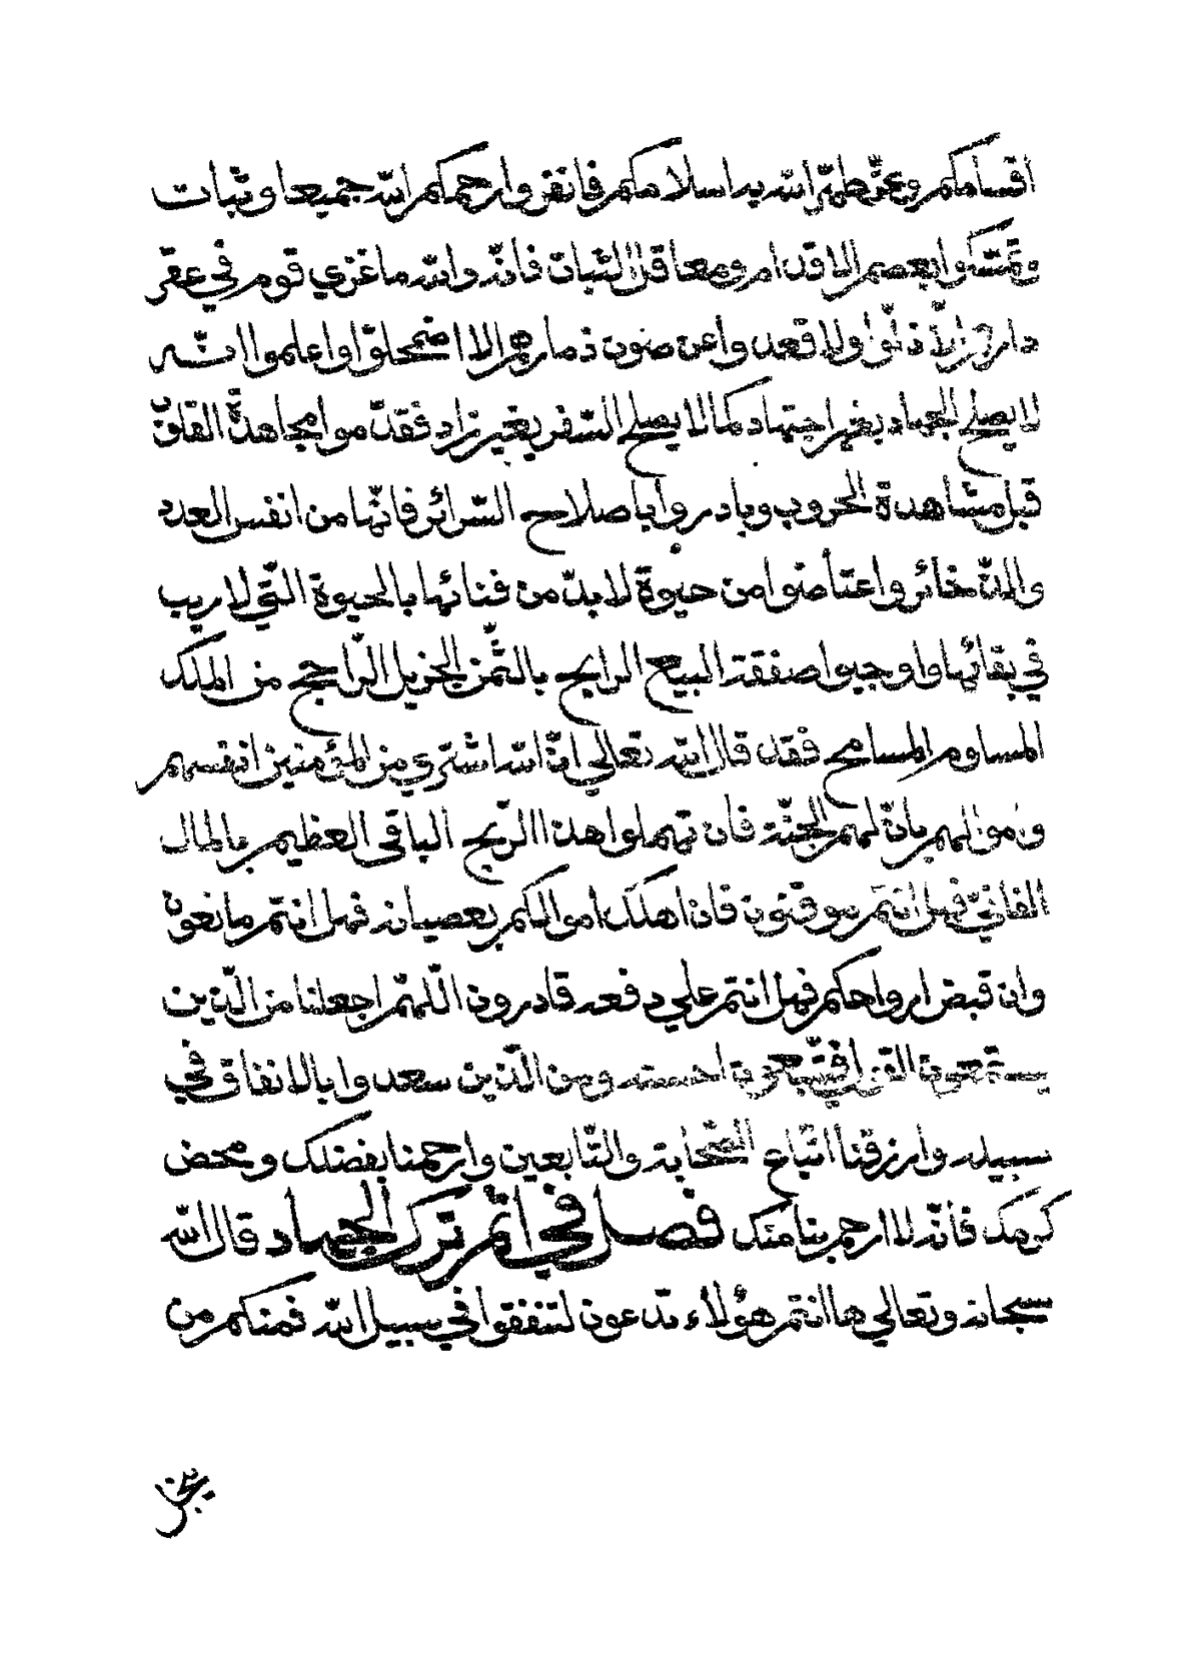 اقسامكم وعمّا طهّر الله به اسلامكم فانفروا رحمكم الله جميعا وثبات
وتمسّكوا بعصم الاقدام ومعاقل الثبات فانّه والله ما غزي قوم في عقر
دارهم الّا ذلّوا ولا قعدوا عن صون ذمارهم الا اضمحلوّا واعلموا انّـه
لا يصلح الجهاد بغير اجتهاد كما لا يصلح السّفر بغير زاد فقدّموا مجاهدة القلوب
قبل مشاهدة الحروب وبادروا باصلاح السّرائر فانّها من انفس العدد
والذّخائر واعتاضوا من حيوة لا بدّ من فنائها بالحيوة الّتي لا ريب
في بقائها واوجبوا صفقة البيع الرابح بالثّمن الجزيل الرّاجح من الملك
المساوم المسامح فقد قال الله تعالي انّ الله اشتري من المؤمنين انفسهم
واموالهم بانّ لهم الجنّة فان تهملوا هذا الرّبح الباقي العظيم بالمال
الفانيّ فهل انتم موقنون فان اهلك اموالكم بعصيانه فهل انتم مانعون
وان قبض ارواحكم فهل انتم علي دفعه قادرون اللّهمّ اجعلنا من الّذين
يستمعون القول فيتّبعون احسنه ومن الّذين سعدوا بالانفاق في
سبيله وارزقنا اتّباع الصّحابة والتّابعين وارحمنا بفضلك ومحض
كرمك فانّه لا ارحم بنا منك فصل في اثم ترك الجهاد قال الله
سبحانه وتعالي ها انتم هؤلاء تدعون لتنفقوا في سبيل الله فمنكم من